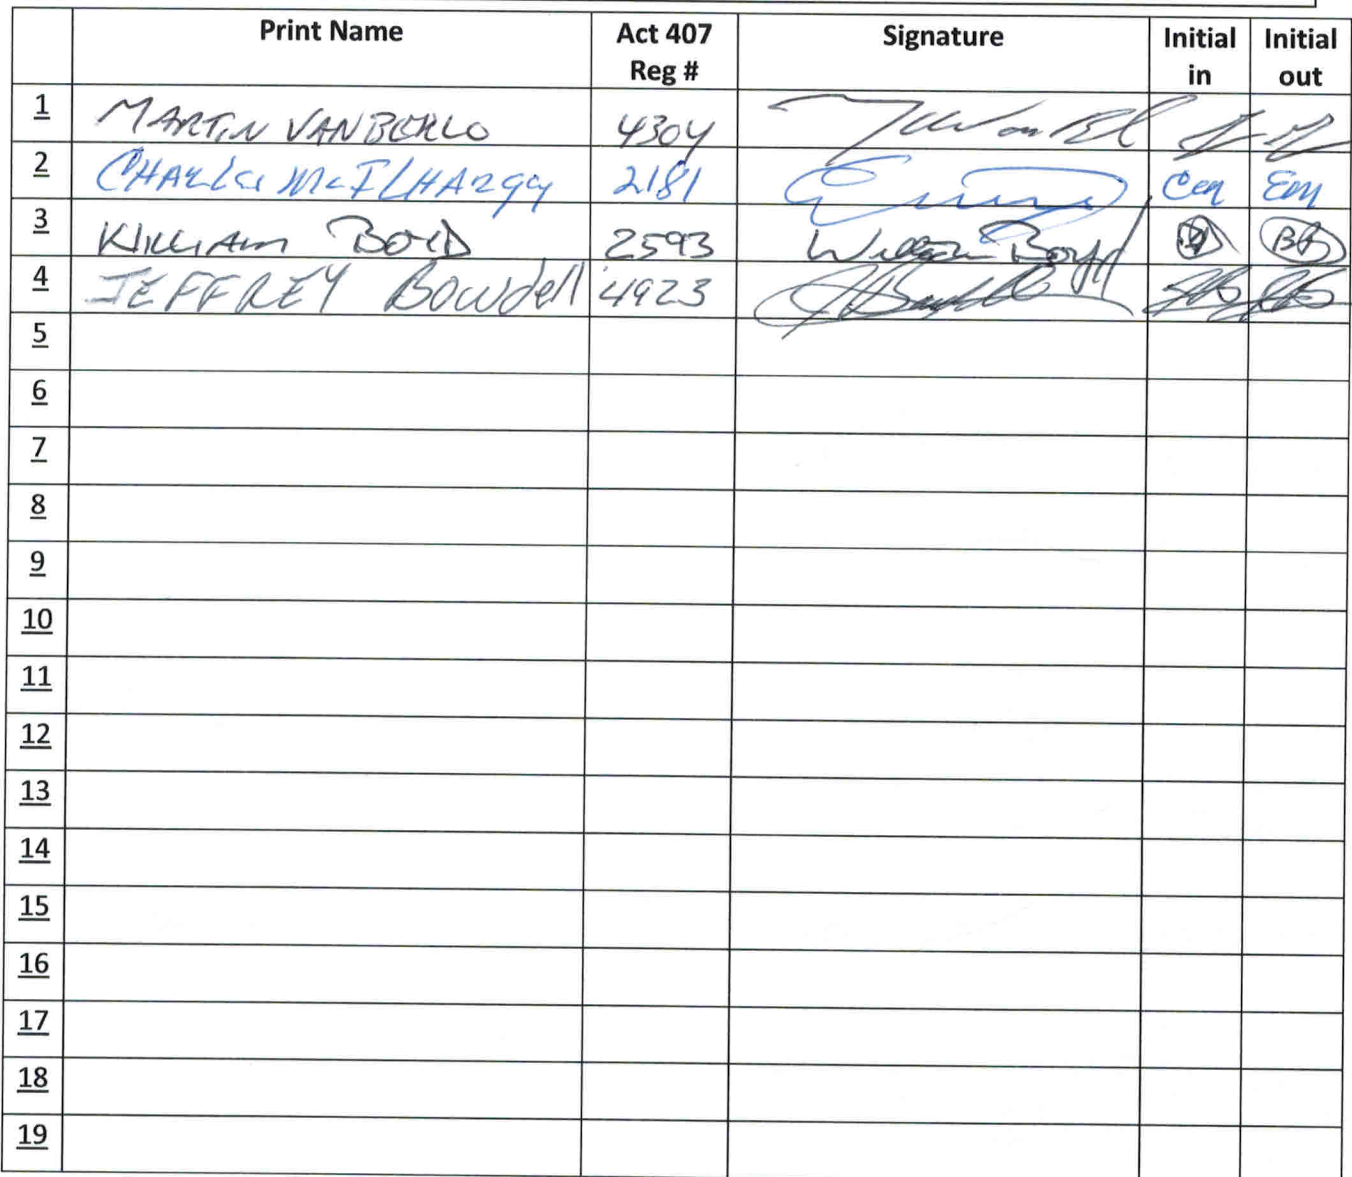 Print Name Act 407 Reg # Signature Initial in Initial out
1 MARTIN VANBERLO 4304
2 CHARLES McILHARGEY 2181 Em
3 WILLIAM BOYD 2593 William Boyd BB
4 JEFFREY Bowdell 4923
5
6
7
8
9
10
11
12
13
14
15
16
17
18
19